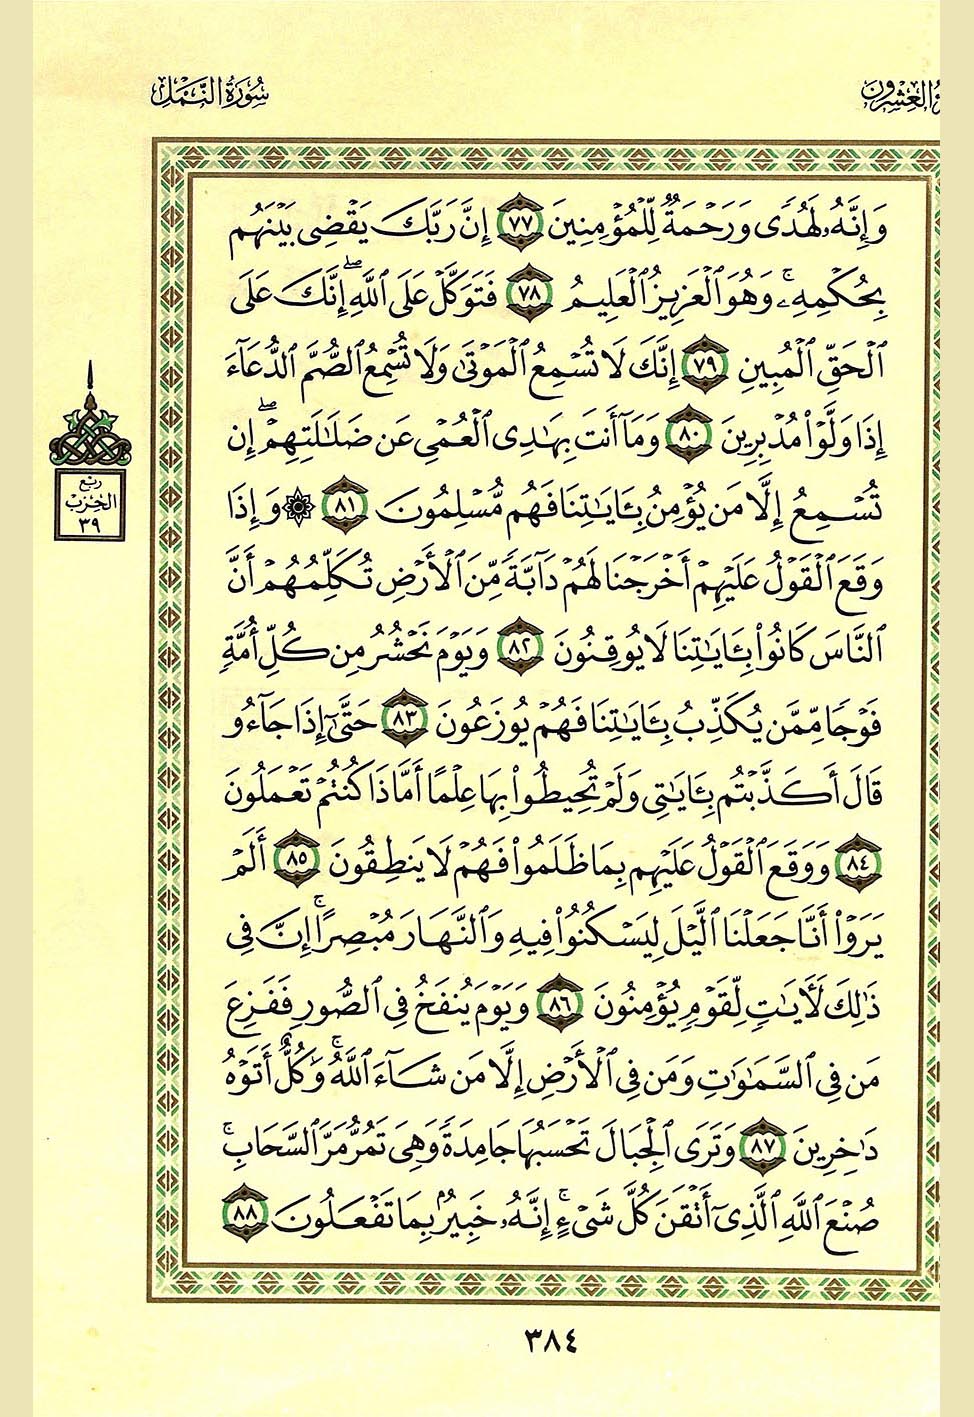 سُورَةُ النَّمْلِ
العِشْرُونَ
وَإِنَّهُۥ لَهُدٗى وَرَحۡمَةٞ لِّلۡمُؤۡمِنِينَ ٧٧ إِنَّ رَبَّكَ يَقۡضِي بَيۡنَهُم
بِحُكۡمِهِۦۚ وَهُوَ ٱلۡعَزِيزُ ٱلۡعَلِيمُ ٧٨ فَتَوَكَّلۡ عَلَى ٱللَّهِۖ إِنَّكَ عَلَى
ٱلۡحَقِّ ٱلۡمُبِينِ ٧٩ إِنَّكَ لَا تُسۡمِعُ ٱلۡمَوۡتَىٰ وَلَا تُسۡمِعُ ٱلصُّمَّ ٱلدُّعَآءَ
إِذَا وَلَّوۡاْ مُدۡبِرِينَ ٨٠ وَمَآ أَنتَ بِهَٰدِي ٱلۡعُمۡيِ عَن ضَلَٰلَتِهِمۡۖ إِن
تُسۡمِعُ إِلَّا مَن يُؤۡمِنُ بِـَٔايَٰتِنَا فَهُم مُّسۡلِمُونَ ٨١ ۞ وَإِذَا
وَقَعَ ٱلۡقَوۡلُ عَلَيۡهِمۡ أَخۡرَجۡنَا لَهُمۡ دَآبَّةٗ مِّنَ ٱلۡأَرۡضِ تُكَلِّمُهُمۡ أَنَّ
ٱلنَّاسَ كَانُواْ بِـَٔايَٰتِنَا لَا يُوقِنُونَ ٨٢ وَيَوۡمَ نَحۡشُرُ مِن كُلِّ أُمَّةٖ
فَوۡجٗا مِّمَّن يُكَذِّبُ بِـَٔايَٰتِنَا فَهُمۡ يُوزَعُونَ ٨٣ حَتَّىٰٓ إِذَا جَآءُو
قَالَ أَكَذَّبۡتُم بِـَٔايَٰتِي وَلَمۡ تُحِيطُواْ بِهَا عِلۡمًا أَمَّاذَا كُنتُمۡ تَعۡمَلُونَ
٨٤ وَوَقَعَ ٱلۡقَوۡلُ عَلَيۡهِم بِمَا ظَلَمُواْ فَهُمۡ لَا يَنطِقُونَ ٨٥ أَلَمۡ
يَرَوۡاْ أَنَّا جَعَلۡنَا ٱلَّيۡلَ لِيَسۡكُنُواْ فِيهِ وَٱلنَّهَارَ مُبۡصِرًاۚ إِنَّ فِي
ذَٰلِكَ لَأٓيَٰتٖ لِّقَوۡمٖ يُؤۡمِنُونَ ٨٦ وَيَوۡمَ يُنفَخُ فِي ٱلصُّورِ فَفَزِعَ
مَن فِي ٱلسَّمَٰوَٰتِ وَمَن فِي ٱلۡأَرۡضِ إِلَّا مَن شَآءَ ٱللَّهُۚ وَكُلٌّ أَتَوۡهُ
دَٰخِرِينَ ٨٧ وَتَرَى ٱلۡجِبَالَ تَحۡسَبُهَا جَامِدَةٗ وَهِيَ تَمُرُّ مَرَّ ٱلسَّحَابِۚ
صُنۡعَ ٱللَّهِ ٱلَّذِيٓ أَتۡقَنَ كُلَّ شَيۡءٍۚ إِنَّهُۥ خَبِيرُۢ بِمَا تَفۡعَلُونَ ٨٨
ربع
الحزب
٣٩
٣٨٤